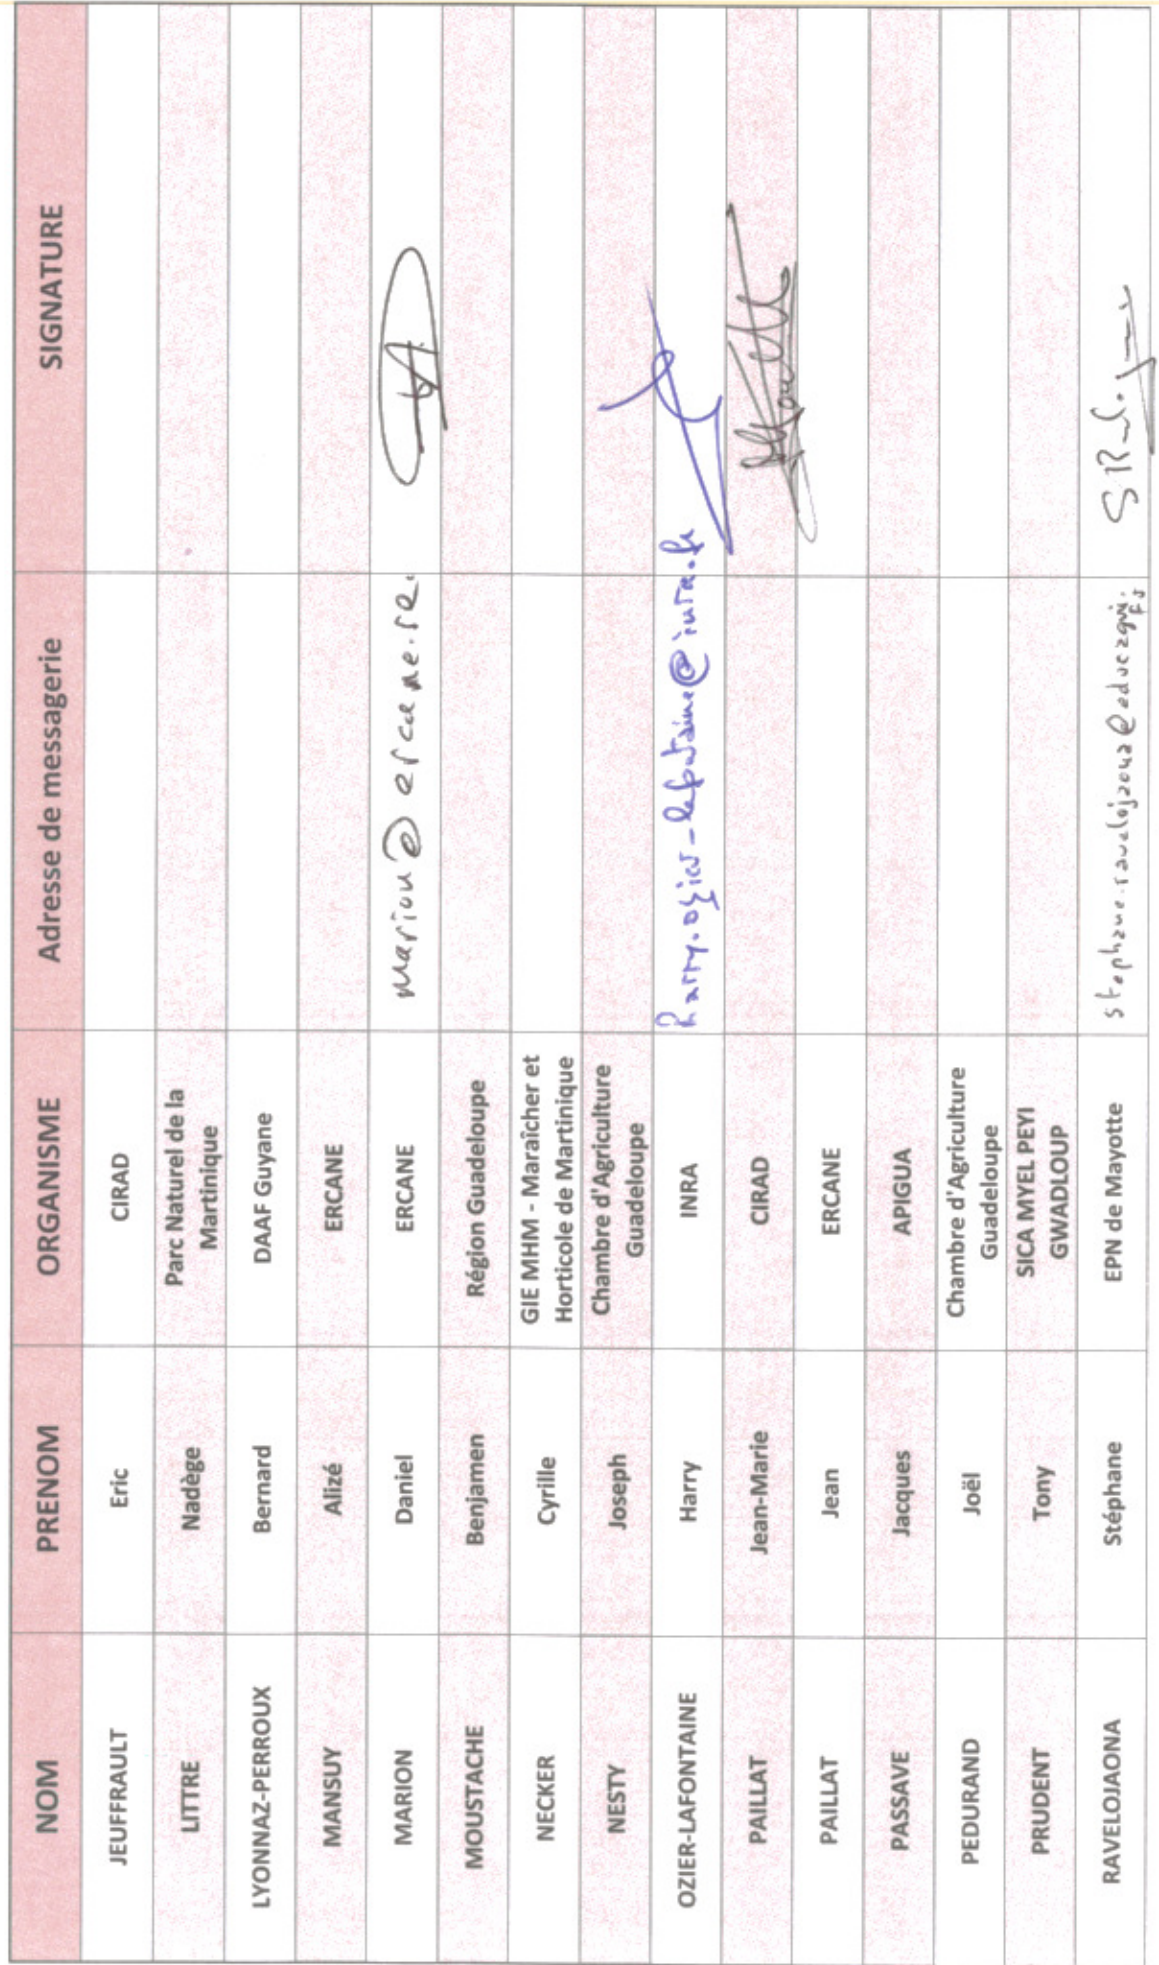 NOM PRENOM ORGANISME Adresse de messagerie SIGNATURE
JEUFFRAULT Eric CIRAD
LITTRE Nadège Parc Naturel de la
Martinique
LYONNAZ-PERROUX Bernard DAAF Guyane
MANSUY Alizé ERCANE
MARION Daniel ERCANE marion@ercane.re
MOUSTACHE Benjamen Région Guadeloupe
NECKER Cyrille GIE MHM - Maraîcher et
Horticole de Martinique
NESTY Joseph Chambre d'Agriculture
Guadeloupe
OZIER-LAFONTAINE Harry INRA harry.ozier-lafontaine@inra.fr
PAILLAT Jean-Marie CIRAD
PAILLAT Jean ERCANE
PASSAVE Jacques APIGUA
PEDURAND Joël Chambre d'Agriculture
Guadeloupe
PRUDENT Tony SICA MYEL PEYI
GWADLOUP
RAVELOJAONA Stéphane EPN de Mayotte stephane.ravelojaona@educagri.
fr